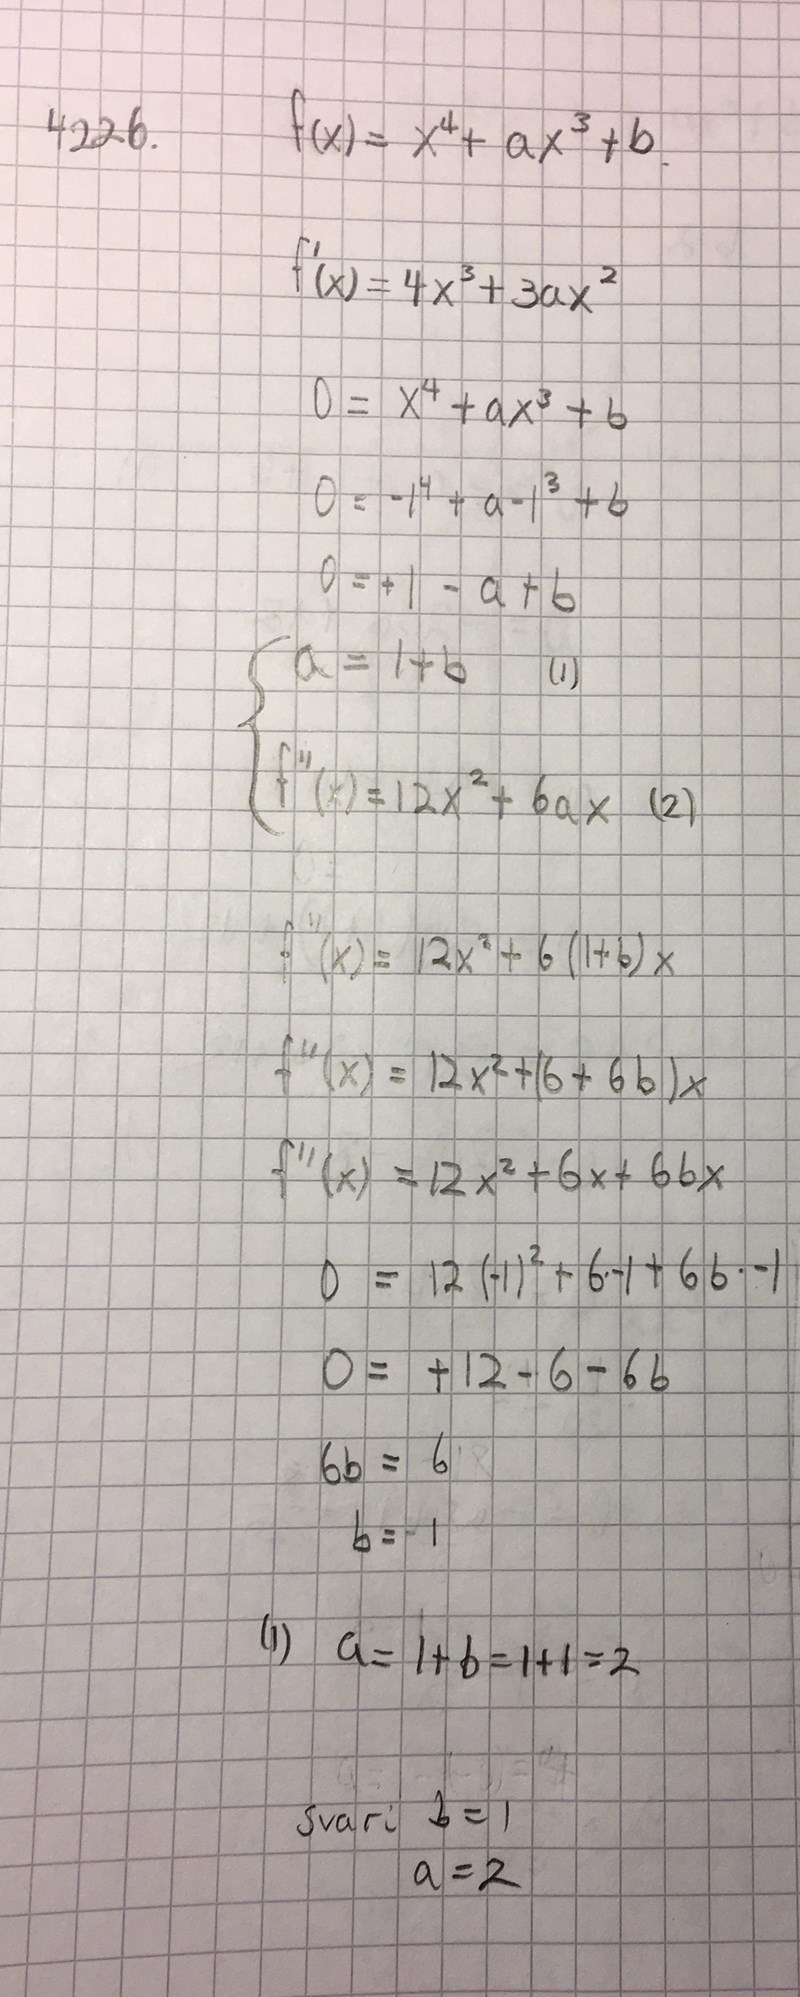 4226. f(x) = x⁴ + ax³ + b.
f'(x) = 4x³ + 3ax²
0 = x⁴ + ax³ + b
0 = -1⁴ + a-1³ + b
0 = +1 - a + b
a = 1+b (1)
f''(x) = 12x² + 6ax (2)
f''(x) = 12x² + 6(1+b)x
f''(x) = 12x² + (6 + 6b)x
f''(x) = 12x² + 6x + 6bx
0 = 12(-1)² + 6·-1 + 6b·-1
0 = +12 - 6 - 6b
6b = 6
b = 1
(1) a = 1+b = 1+1 = 2
svar: b = 1
a = 2